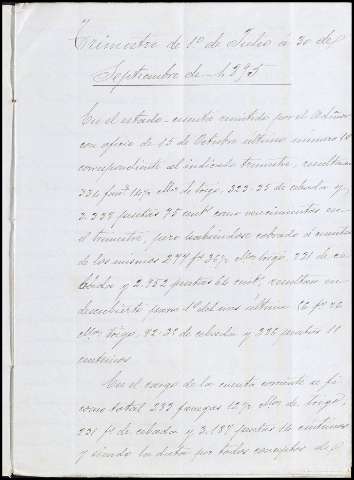 Trimestre de 1º de Julio á 30 de
Septiembre de 1895
En el estado cuenta remitido por el Admor
con oficio de 15 de Octubre ultimo numero
correspondiente al indicado trimestre, resultan
de trigo, 323 25 de cebada y
3.238 pesetas 75 centº como vencimientos en
el trimestre, pero habiendose cobrado á cuenta
de los mismos 277 fº de trigo, 231 de ce
bada y 2.952 pesetas 64 centº, resultan en
descubierto para 1º del mes ultimo
trigo, 92 de cebada y 286 pesetas 11
centimos
En el cargo de la cuenta corriente se fi
como total 283 fanegas de trigo,
231 fº de cebada y 3.187 pesetas 14 centimos
y siendo la data por todos conceptos de